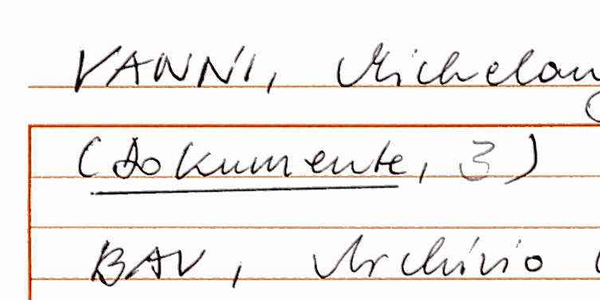 VANNI, Michelang
(Dokumente, 3)
BAV, Archivio